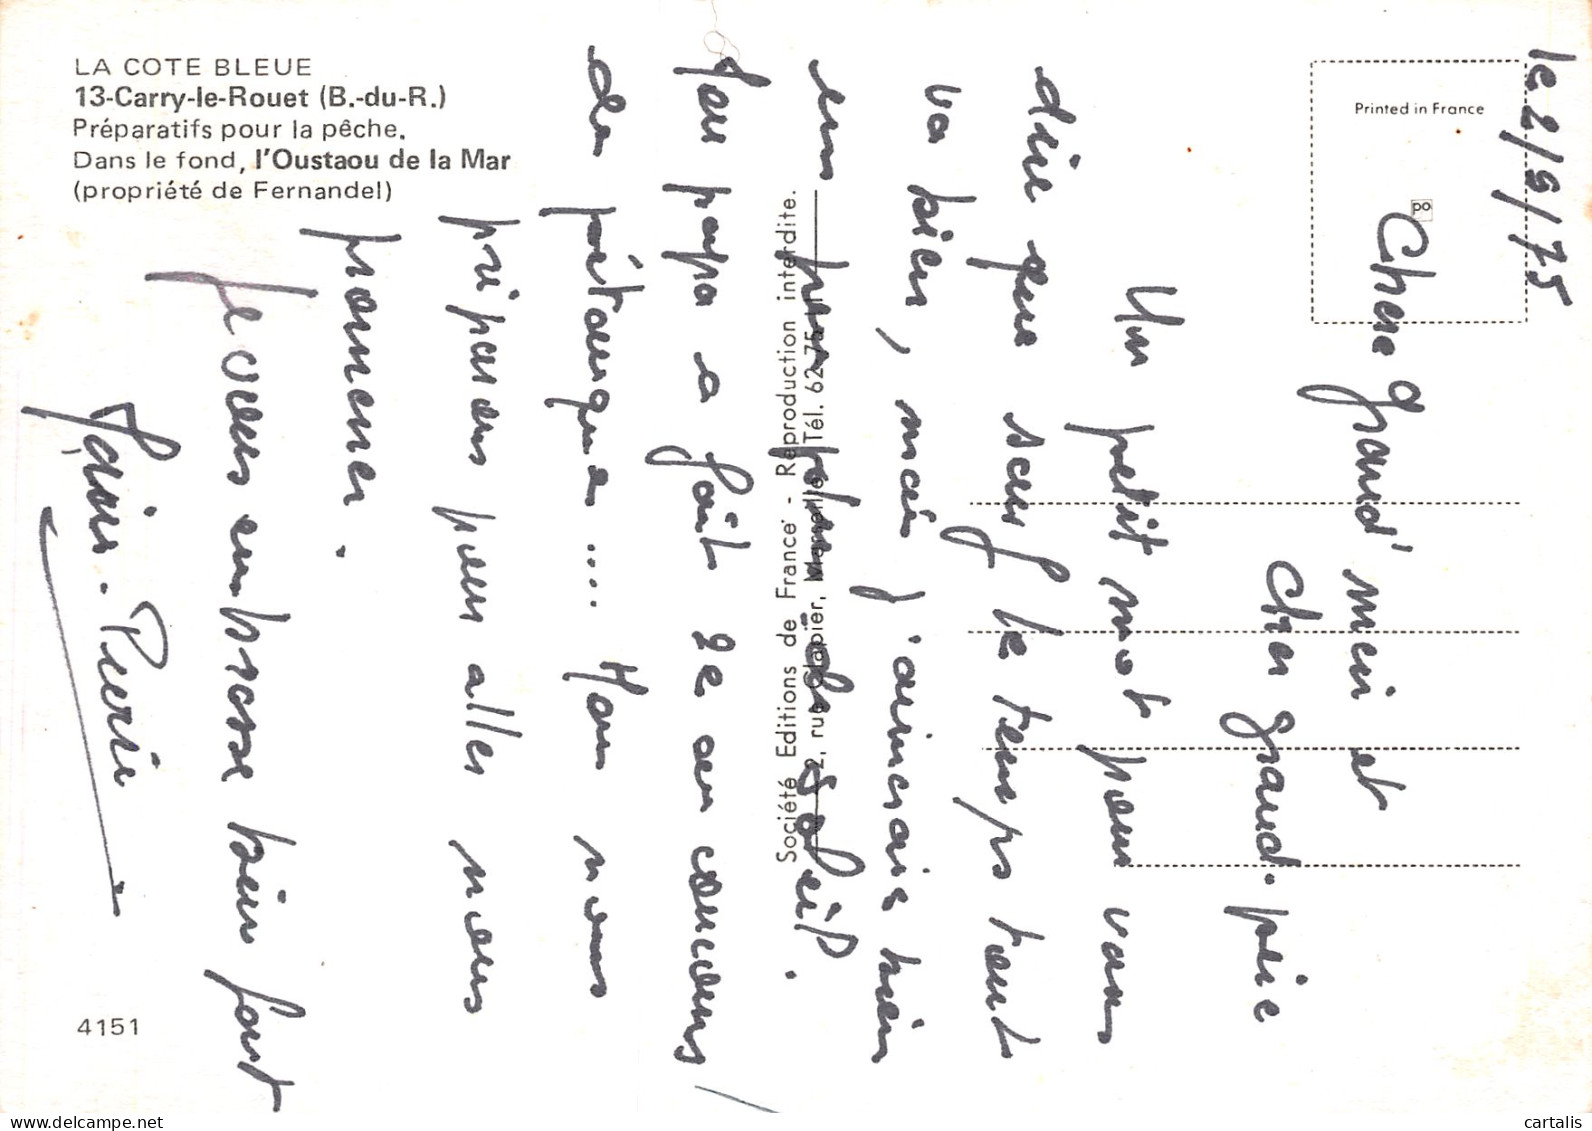 LA COTE BLEUE
13-Carry-le-Rouet (B.-du-R.)
Préparatifs pour la pêche.
Dans le fond, l'Oustaou de la Mar
(propriété de Fernandel)
Printed in France
Société Editions de France - Reproduction interdite.
2, rue Clapier, Marseille Tél. 62-75-11
4151
le 2/9/75
Chere Grand' mère et
cher grand-père
Un petit mot pour vous
dire que sauf le temps tout
va bien, moi j'aimerais bien
un peu plus de soleil.
Mon papa a fait 2e au concours
de pétanque.... Nous nous
préparons pour aller nous
promener.
Je vous embrasse bien fort
Pierre
www.delcampe.net
cartalis